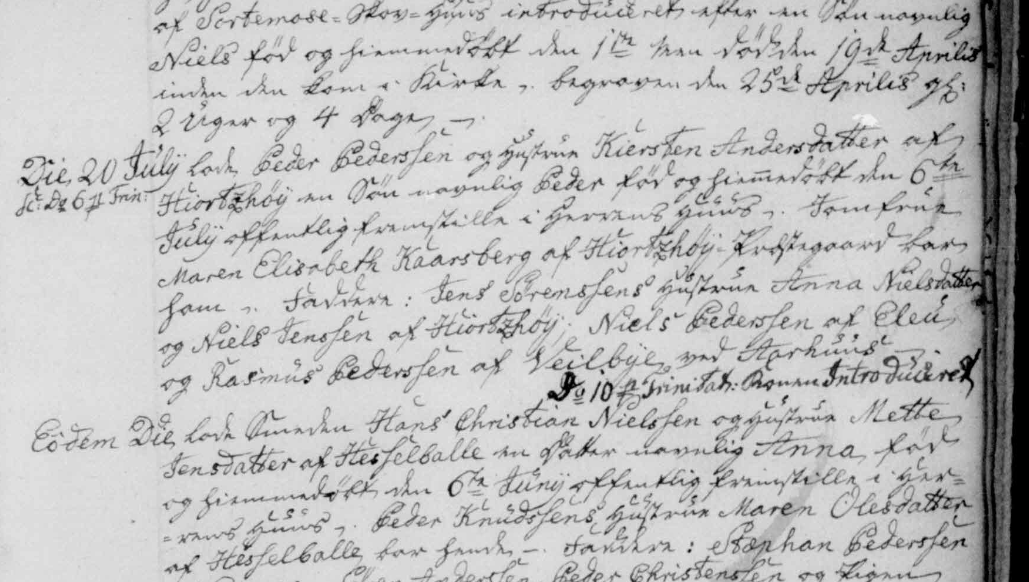 af Portemose=Skov=Huus introduceret efter en Søn navnlig
Niels fød og hiemmedøbt den 1te Men død den 19de Aprilis
inden den kom i Kirke, begraven den 25de Aprilis gl:
2 Uger og 4 Dage, —
Die 20 July lode Peder Pederssen og Hustrue Kiersten Andersdatter af
Hiortzhøy en Søn navnlig Peder fød og hiemedøbt den 6te
6 p Trin:
July offentlig fremstille i Herrens Huus. Jomfrue
Maren Elisabeth Kaarsberg af Hiortzhøy=Præstegaard bar
ham. Faddere: Jens Sørenssens Hustrue Anna Nielsdatter
og Niels Jenssen af Hiortzhøy; Niels Pederssen af Eleu
og Rasmus Pederssen af Veilbye ved Aarhuus —
Do 10 p Trinitat: Konen Introduceret
Eodem Die lode Smeden Hans Christian Nielssen og Hustrue Mette
Jensdatter af Hesselballe en Datter navnlig Anna, fød
og hiemmedøbt den 6te Juny offentlig fremstille i Her=
=rens Huus. Peder Knudssens Hustrue Maren Olesdatter
af Hesselballe bar hende —. Faddere: Stephan Pederssen
Anderssen Peder Christenssen og Pigen